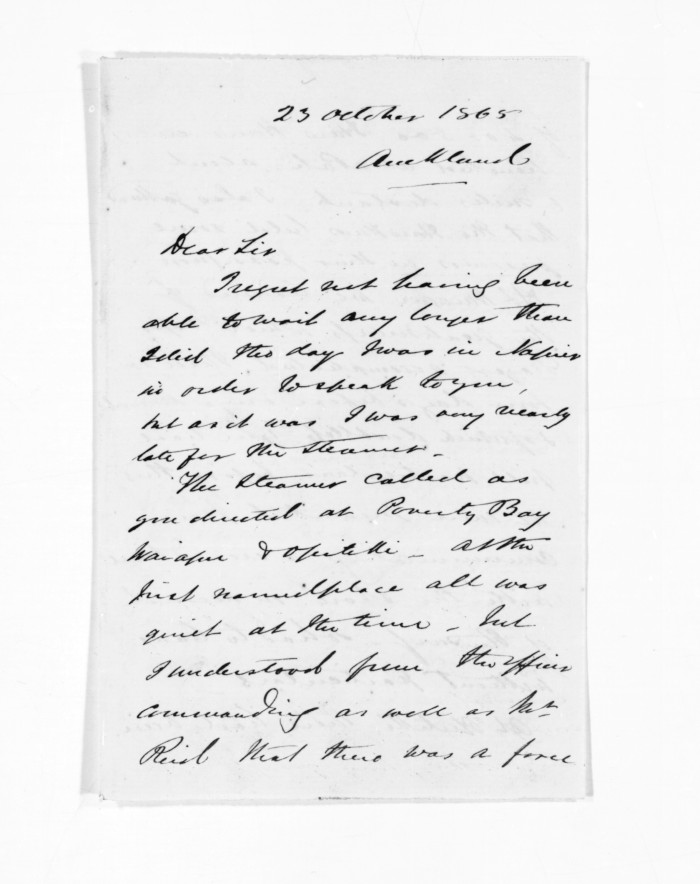 23 October 1865
Auckland
Dear Sir
I regret not having been
able to wait any longer than
I did the day I was in Napier
in order to speak to you,
but as it was I was very nearly
late for the Steamer.
The Steamer called as
you directed at Poverty Bay
Waiapu & Opitiki - At the
first named place all was
quiet at the time - but
I understood from the officer
commanding as well as Mr
Reid that there was a force